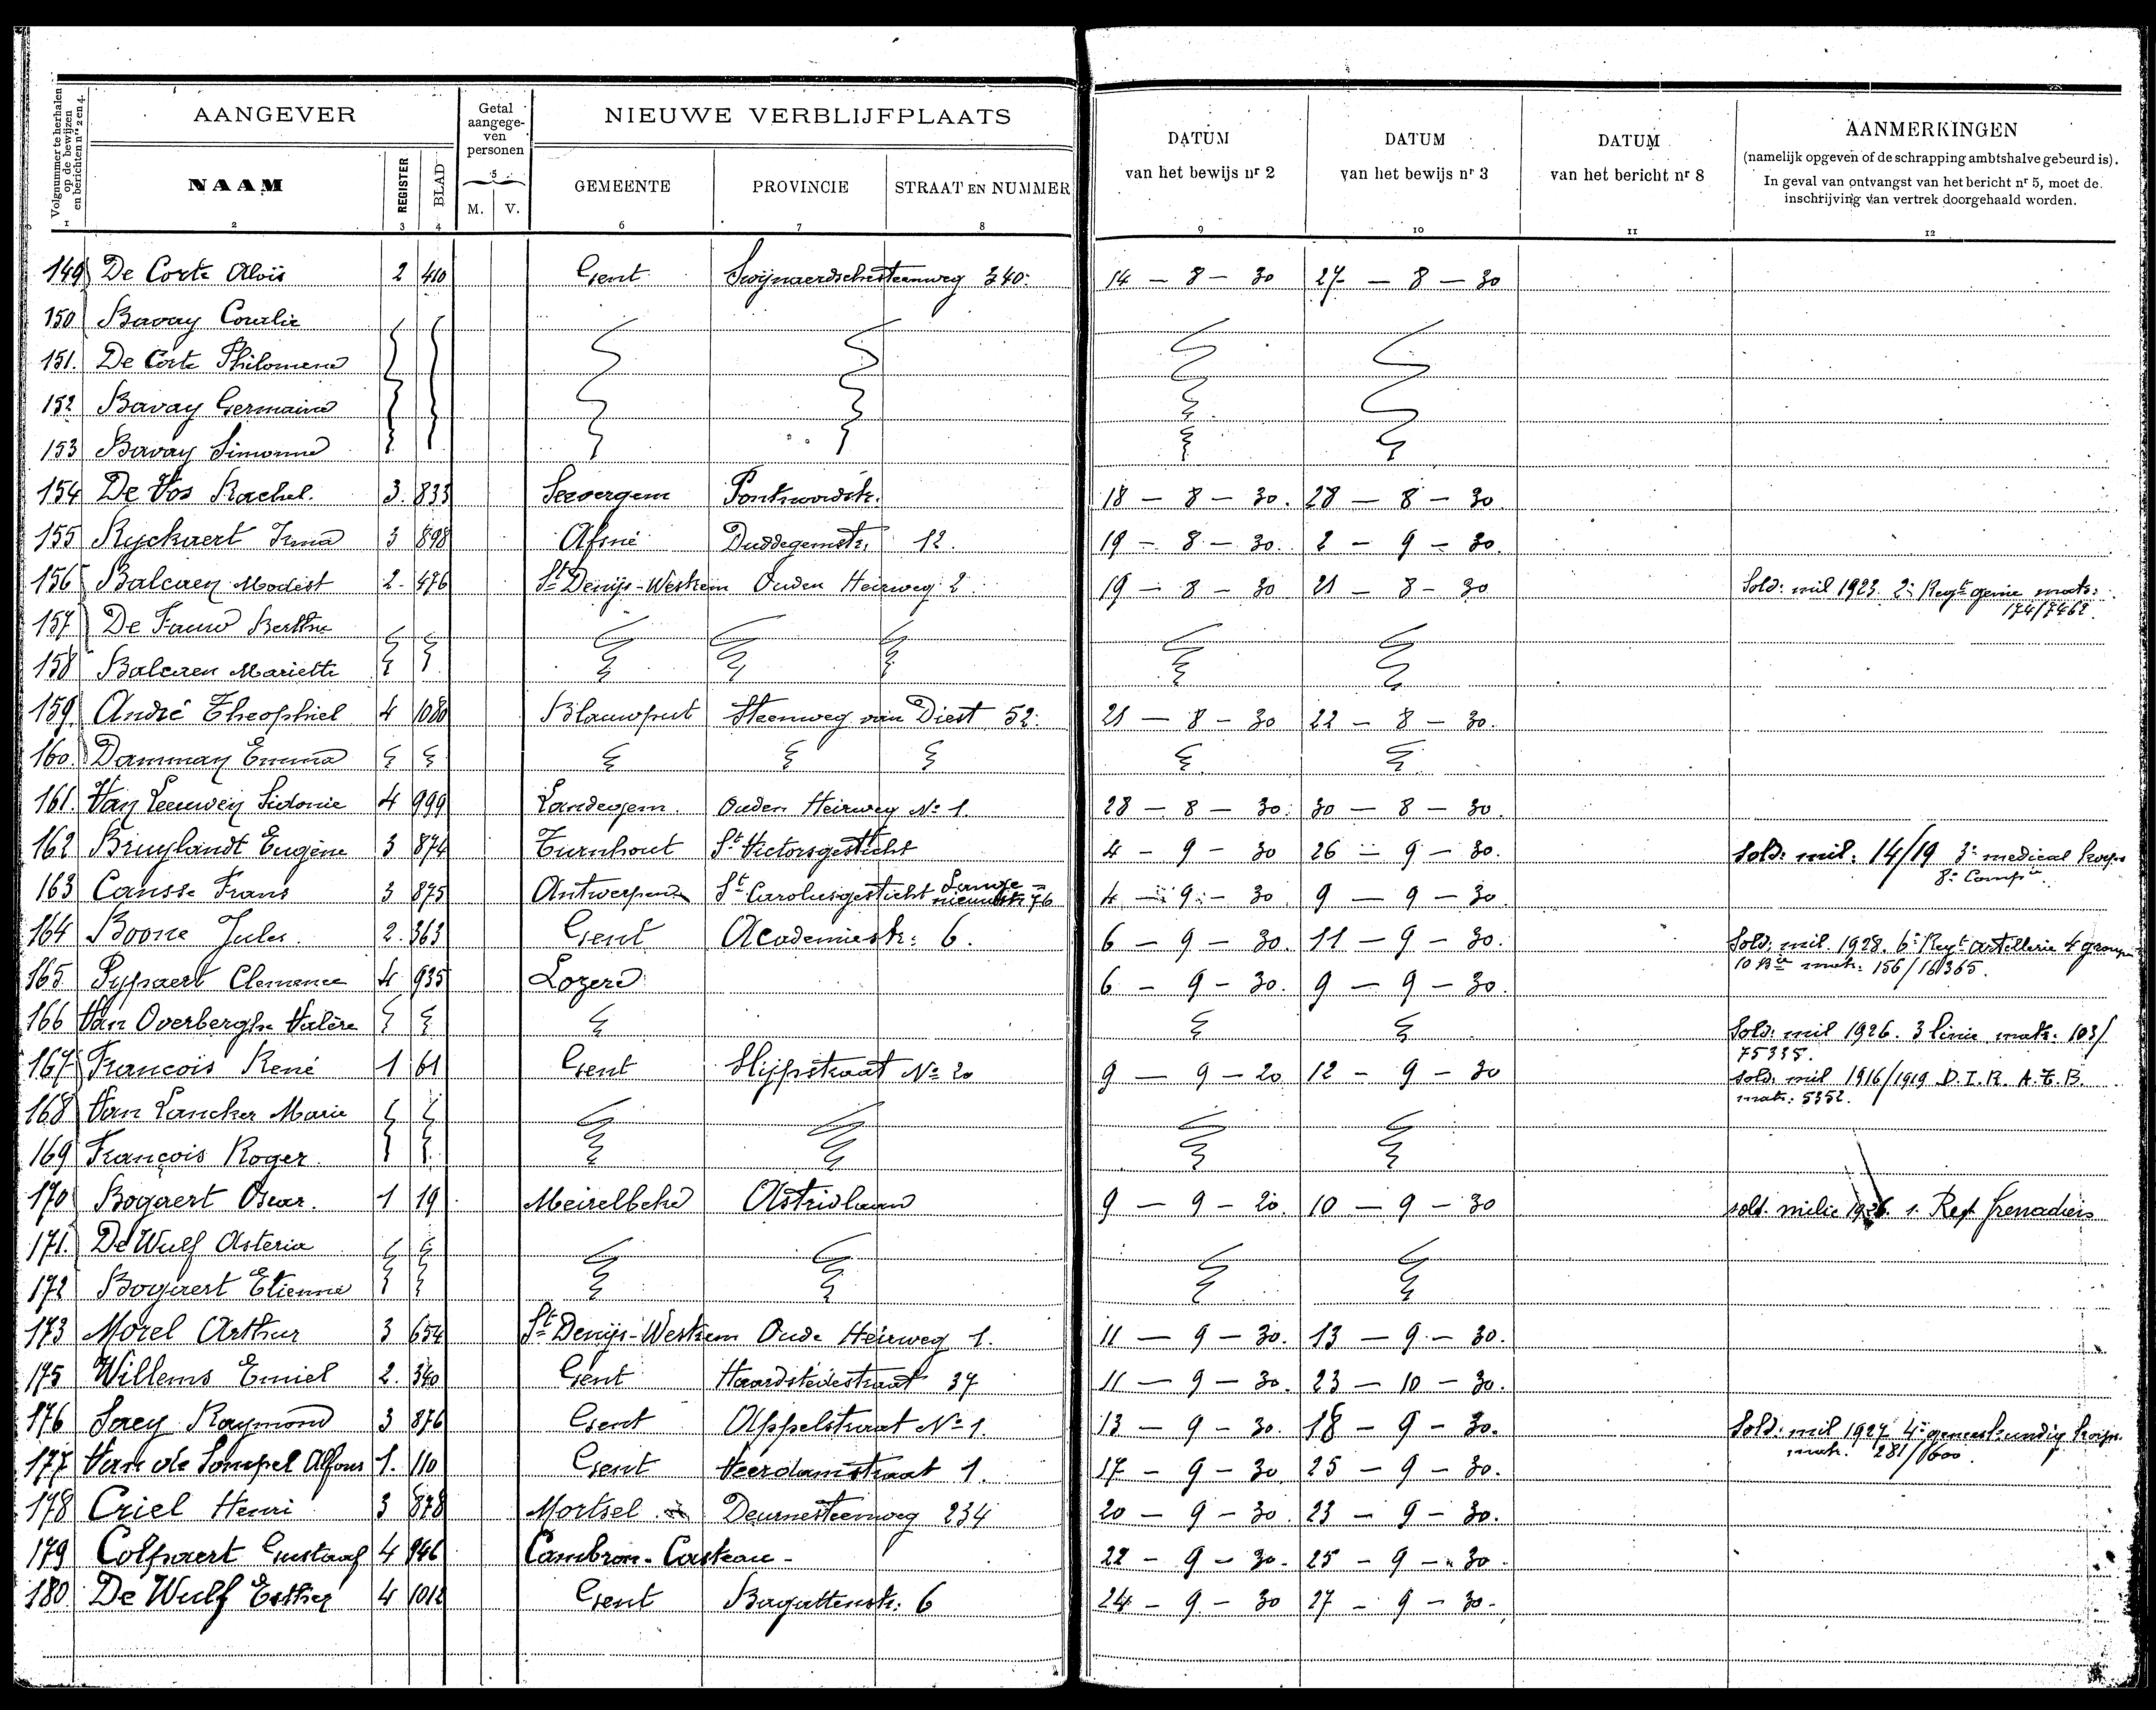 Volgnummer te herhalen op de bewijzen en berichten nrs 2 en 4.
AANGEVER
Getal aangegeven personen
NIEUWE VERBLIJFPLAATS
DATUM van het bewijs nr 2
DATUM van het bewijs nr 3
DATUM van het bericht nr 8
AANMERKINGEN
(namelijk opgeven of de schrapping ambtshalve gebeurd is).
In geval van ontvangst van het bericht nr 5, moet de inschrijving van vertrek doorgehaald worden.
NAAM REGISTER BLAD 5 M. V. GEMEENTE PROVINCIE STRAAT EN NUMMER
1 2 3 4 6 7 8 9 10 11 12
149 De Corte Aloïs 2 410 Gent Swijnaerdschesteenweg 340. 14 — 8 — 30 27 — 8 — 30
150 Bavay Coralie
151. De Corte Philomena
152 Bavay Germaine
153 Bavay Simonne
154 De Vos Rachel. 3. 833 Seevergem 18 — 8 — 30. 28 — 8 — 30.
155 Ryckaert Irma 3 898 Afsné Duddegemstr. 12. 19 — 8 — 30. 2 — 9 — 30.
156 Balcaen Modest 2. 476 St Denijs-Westrem Ouden Heirweg 2. 19 — 8 — 30 21 — 8 — 30 Sold: mil 1923. 2e Regt genie matr: 174/7462.
157 De Fauw Berthe
158 Balcaen Mariette
159. André Theophiel 4 1080 Blauwput Steenweg van Diest 52. 21 — 8 — 30 22 — 8 — 30.
160. Damman Emma
161. Van Leeuwen Sidonie 4 999 Landegem. Ouden Heirweg No 1. 28 — 8 — 30. 30 — 8 — 30.
162 Bruylandt Eugène 3 874 Turnhout St Victorsgesticht 4 — 9 — 30 26 — 9 — 30. Sold: mil: 14/19 3e medical korps 8e Compie
163 Cansse Frans 3 875 Antwerpen St Carolusgesticht Lange nieuwstr 76 4 — 9 — 30 9 — 9 — 30
164 Boone Jules. 2. 363 Gent Academiestr: 6. 6 — 9 — 30. 11 — 9 — 30. Sold: mil. 1928. 6e Regt artillerie 4 groep 10 Bie matr: 156/16365.
165. Pypaert Clemence 4 935 Lozere 6 — 9 — 30. 9 — 9 — 30.
166 Van Overberghe Valère Sold: mil 1926. 3 linie matr: 103/75335.
167 François René 1 61 Gent Slijpstraat No 20 9 — 9 — 20 12 — 9 — 30 Sold: mil 1916/1919 D.I.R. A.T.B. matr: 5352.
168 Van Lancker Marie
169 François Roger.
170 Bogaert Oscar. 1 19 Meirelbeke Astridlaan 9 — 9 — 20. 10 — 9 — 30 sold. milie 1926. 1. Regt Grenadiers
171. De Wulf Asteria
172 Bogaert Etienne
173 Morel Arthur 3 654 St Denijs-Westrem Oude Heirweg 1. 11 — 9 — 30. 13 — 9 — 30.
175 Willems Emiel 2. 340 Gent Haardstedestraat 37 11 — 9 — 30. 23 — 10 — 30.
176 Saey Raymond 3 876 Gent Appelstraat No 1. 13 — 9 — 30. 18 — 9 — 30. Sold: mil 1927 4e geneeskundig korps. matr. 281/1600.
177 Van de Sompel Alfons 1. 110 Gent Veerdamstraat 1. 17 — 9 — 30 25 — 9 — 30.
178 Criel Henri 3 878 Mortsel Deurnesteenweg 234 20 — 9 — 30. 23 — 9 — 30.
179 Colpaert Gustaaf 4 946 Cambron-Casteau - 22 — 9 — 30. 25 — 9 — 30.
180 De Wulf Esther 4 1012 Gent Bagattenstr: 6 24 — 9 — 30 27 — 9 — 30.